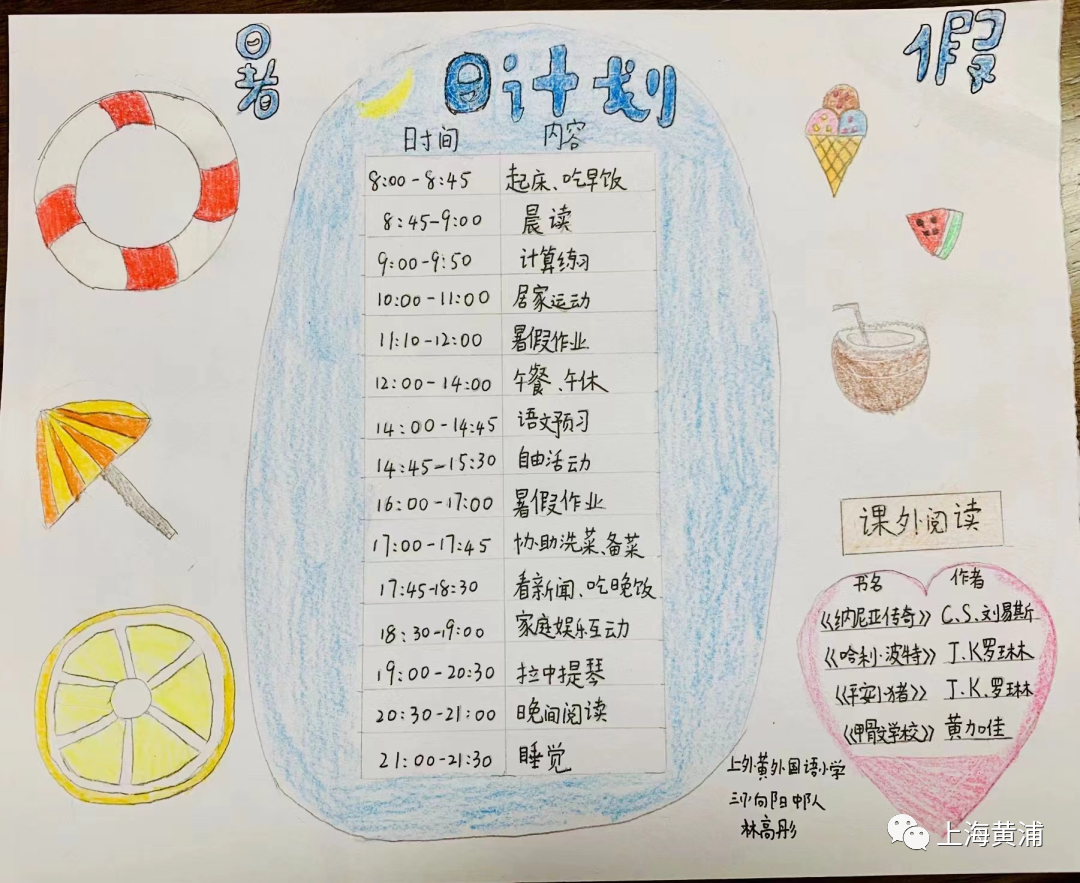 暑 假
日计划
时间 内容
8:00-8:45 起床、吃早饭
8:45-9:00 晨读
9:00-9:50 计算练习
10:00-11:00 居家运动
11:10-12:00 暑假作业
12:00-14:00 午餐、午休
14:00-14:45 语文预习
14:45-15:30 自由活动
16:00-17:00 暑假作业
17:00-17:45 协助洗菜、备菜
17:45-18:30 看新闻、吃晚饭
18:30-19:00 家庭娱乐互动
19:00-20:30 拉中提琴
20:30-21:00 晚间阅读
21:00-21:30 睡觉
课外阅读
书名 作者
《纳尼亚传奇》 C.S.刘易斯
《哈利·波特》 J.K罗琳
《平安小猪》 J.K.罗琳
《甲骨文学校》 黄加佳
上外黄外国语小学
向阳中队
林高彤
上海黄浦